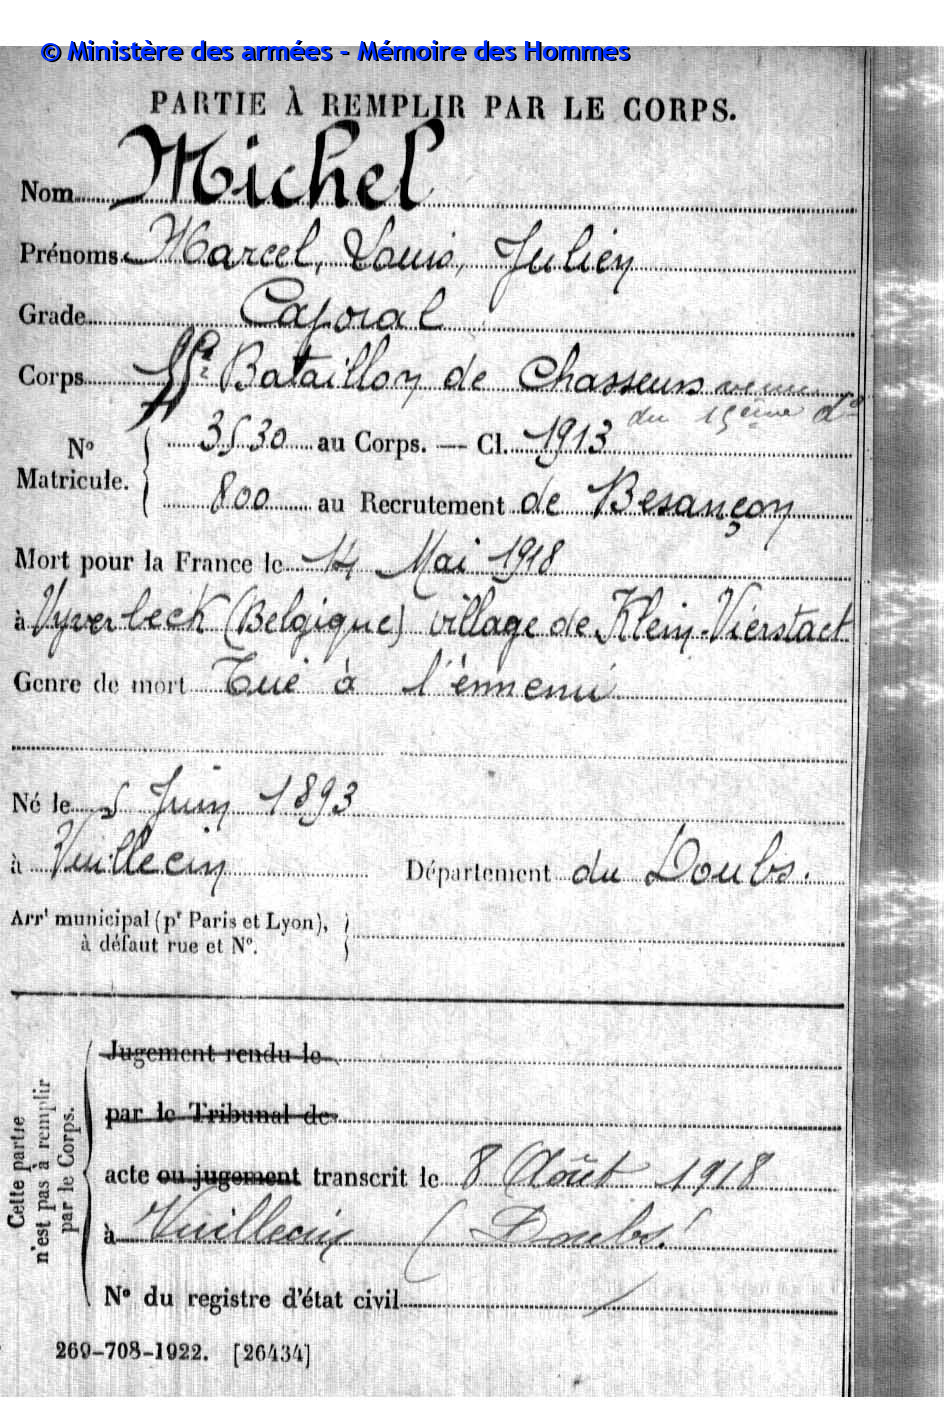 © Ministère des armées - Mémoire des Hommes
PARTIE À REMPLIR PAR LE CORPS.
Nom Michel
Prénoms Marcel, Louis, Julien
Grade Caporal
Corps Bataillon de Chasseurs venu
du 15ème do
No Matricule. 3530 au Corps. — Cl. 1913
800 au Recrutement de Besançon
Mort pour la France le 14 Mai 1918
à Vyverbeck (Belgique) village de Klein-Vierstaet
Genre de mort Tué à l'ennemi
Né le 5 Juin 1893
à Vuillecin Département du Doubs.
Arrt municipal (pr Paris et Lyon),
à défaut rue et No.
Cette partie n'est pas à remplir par le Corps.
Jugement rendu le
par le Tribunal de
acte ou jugement transcrit le 8 Août 1918
à Vuillecin (Doubs)
No du registre d'état civil
269-708-1922. [26434]